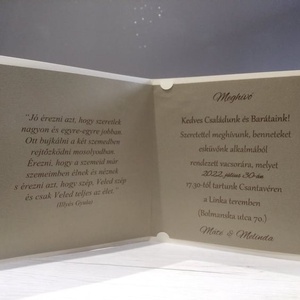 "Jó érezni azt, hogy szeretlek
nagyon és egyre-egyre jobban.
Ott bujkálni a két szemedben
rejtőzködni mosolyodban.
Érezni, hogy a szemeid már
szemeimben élnek és néznek
s érezni azt, hogy szép, Veled szép
és csak Veled teljes az élet."
(Illyés Gyula)
Meghívó
Kedves Családunk és Barátaink!
Szeretettel meghívunk, benneteket
esküvőnk alkalmából
rendezett vacsorára, melyet
2022. július 30-án
17:30-tól tartunk Csantavéren
a Linka teremben
(Bolmanska utca 70.)
Mats & Melinda